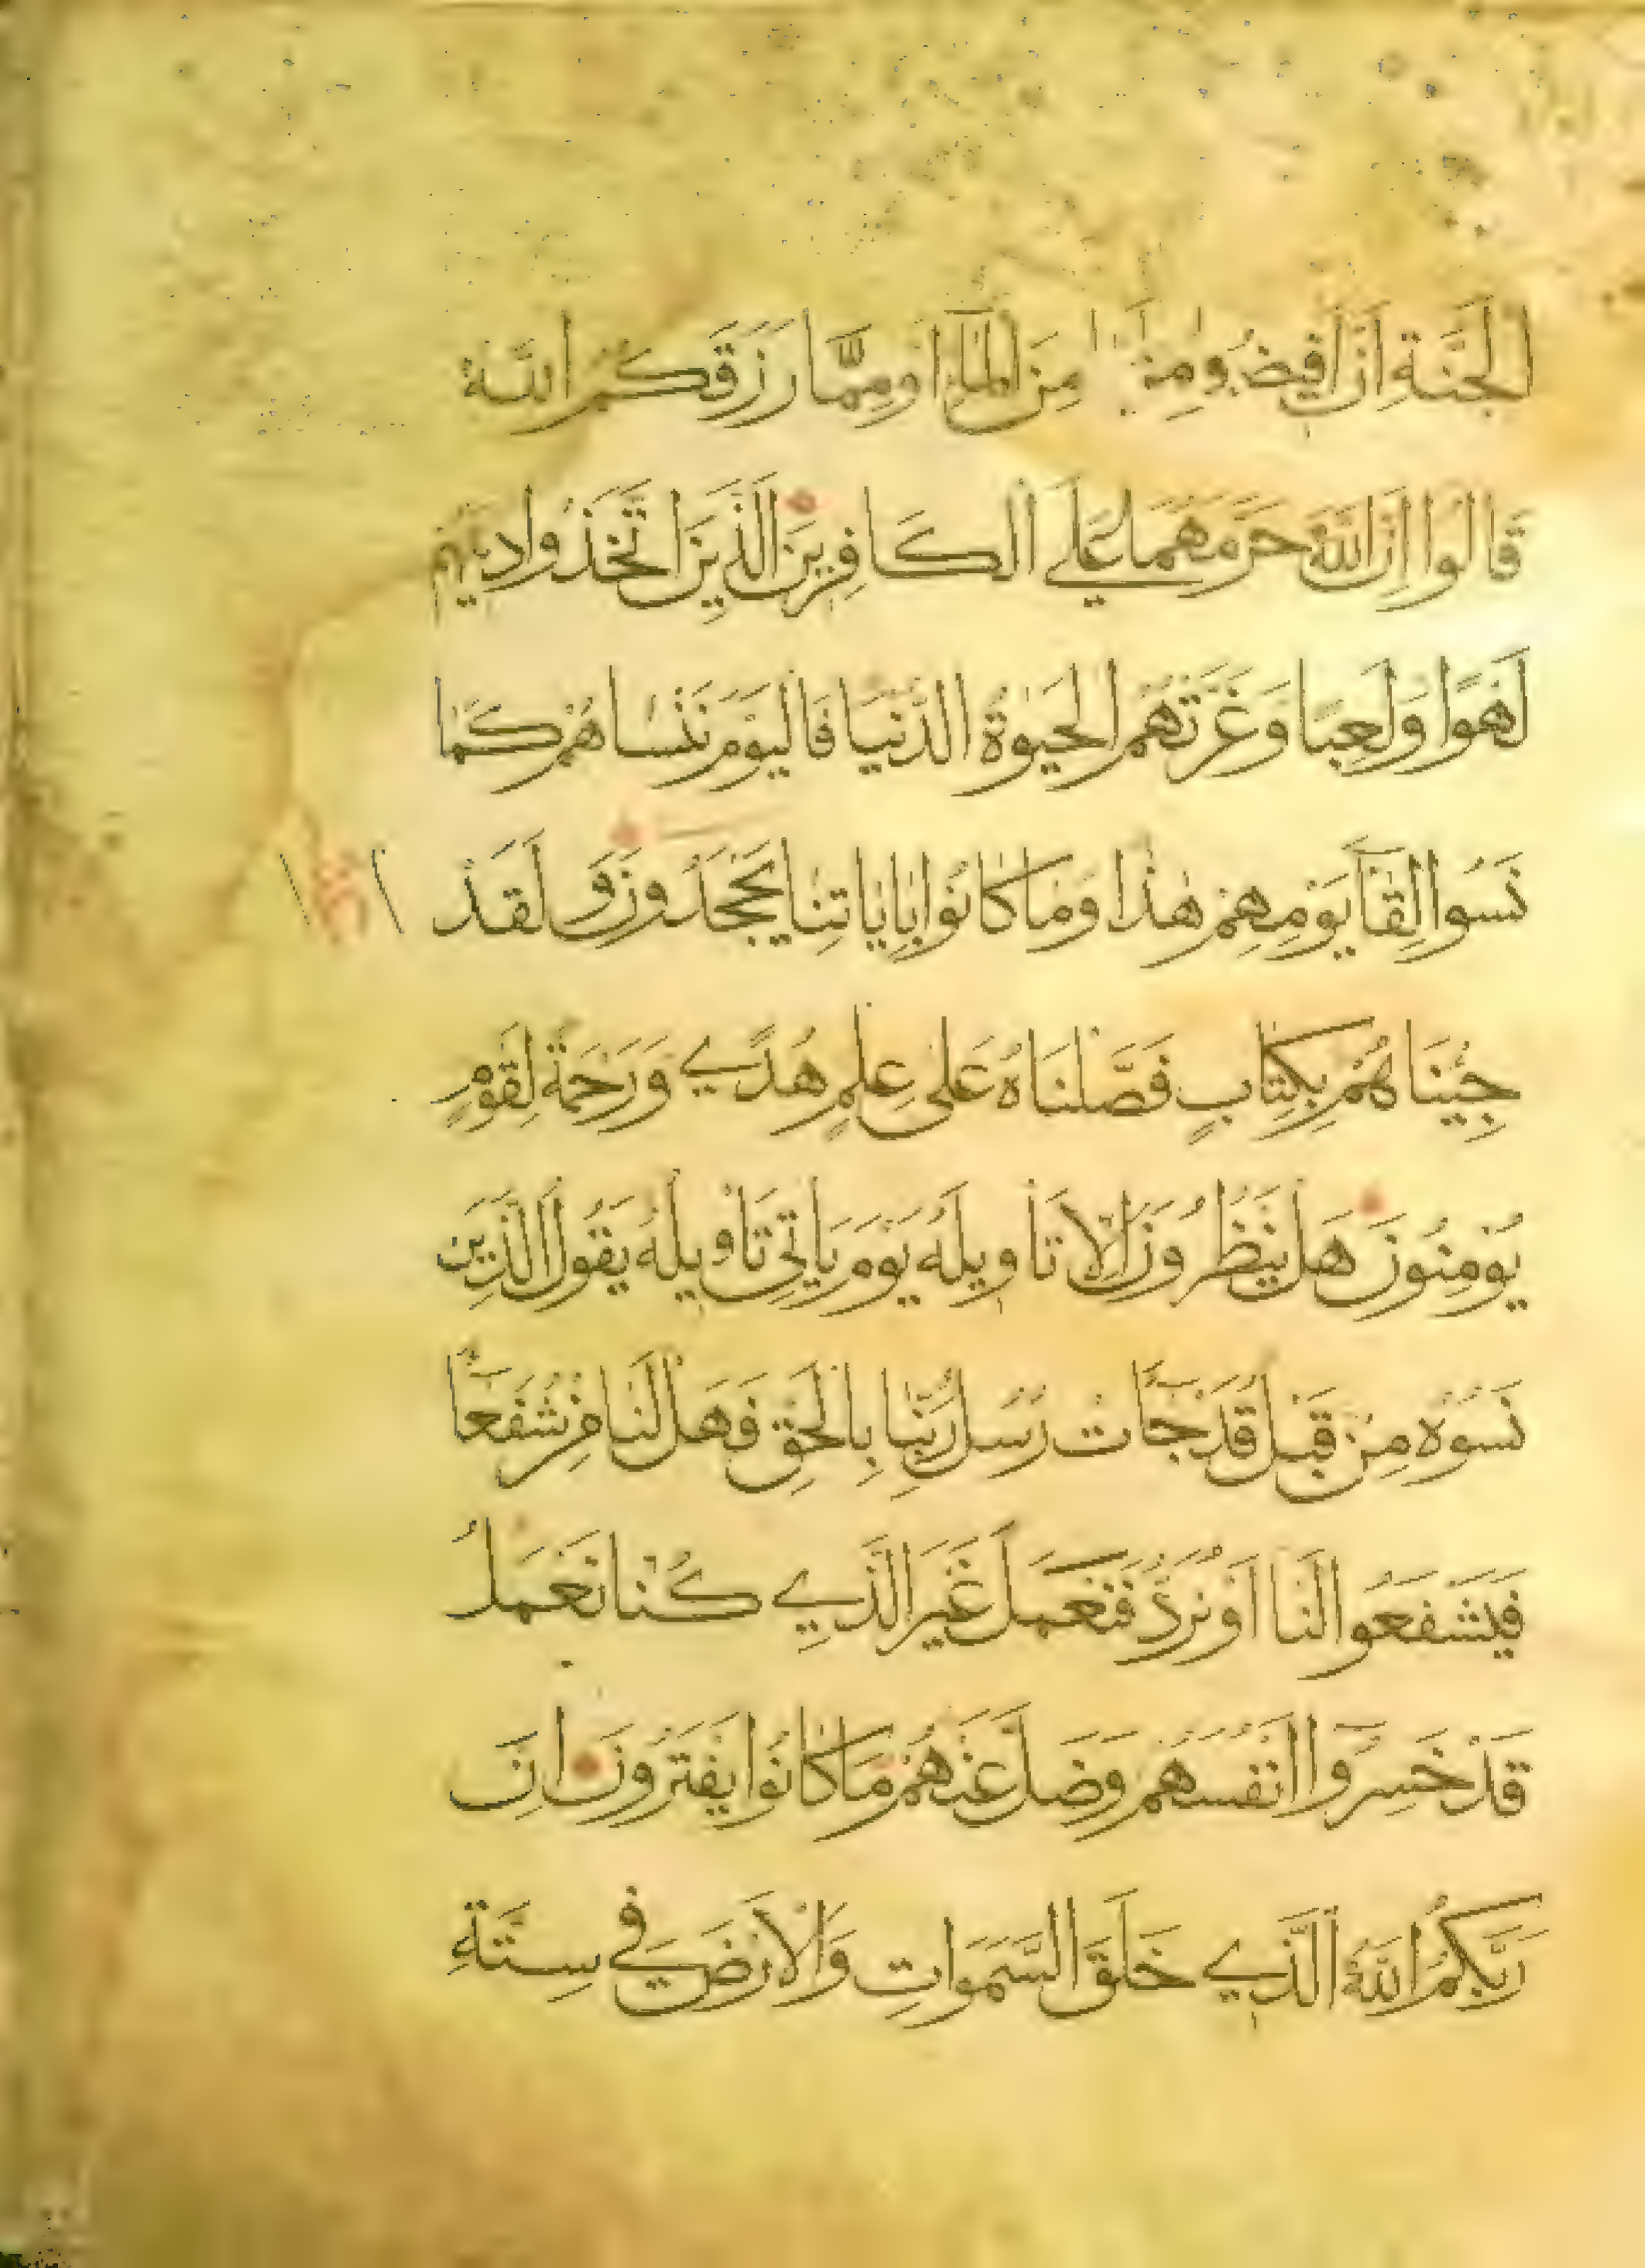 الجَنَّةِ اَنْ اَفِيضُو مِنَ الْمَآءِ اَو مِمَّا رَزَقَكُمُ اللهُ
قَالُوا اِنَّ اللهَ حَرَّمَهُمَا عَلَي الكَافِرِينَ الَّذِينَ اتَّخَذُوا دِينَهُم
لَهْوًا وَلَعِبًا وَغَرَّتْهُمُ الحَيٰوةُ الدُّنْيَا فَاليَوْمَ نَنْسَاهُمْ كَمَا
نَسُوا لِقَآ يَوْمِهِمْ هٰذَا وَمَا كَانُوا بِايَاتِنَا يَجْحَدُونَ وَلَقَدْ
جِئْنَاهُمْ بِكِتَابٍ فَصَّلْنَاهُ عَلٰى عِلمٍ هُدًي وَرَحْمَةً لِقَوْمٍ
يُوْمِنُونَ هَل يَنْظُرُونَ اِلَّا تَاوِيلَهُ يَوْمَ يَاتِي تَاْوِيلُهُ يَقُولُ الَّذِينَ
نَسُوْهُ مِنْ قَبْلُ قَدْ جَآتْ رُسُلُ رَبِّنَا بِالحَقِّ فَهَل لَنَا مِنْ شُفَعَآ
فَيَشْفَعُوا لَنَا اَوْ نُرَدُّ فَنَعْمَلَ غَيْرَ الَّذِي كُنَّا نَعْمَلُ
قَدْ خَسِرُوا اَنْفُسَهُم وَضَلَّ عَنْهُمْ مَا كَانُوا يَفْتَرُونَ اِنَّ
رَبَّكُمُ اللهُ الَّذِي خَلَقَ السَّمَوَاتِ وَالْاَرْضَ فِي سِتَّةِ